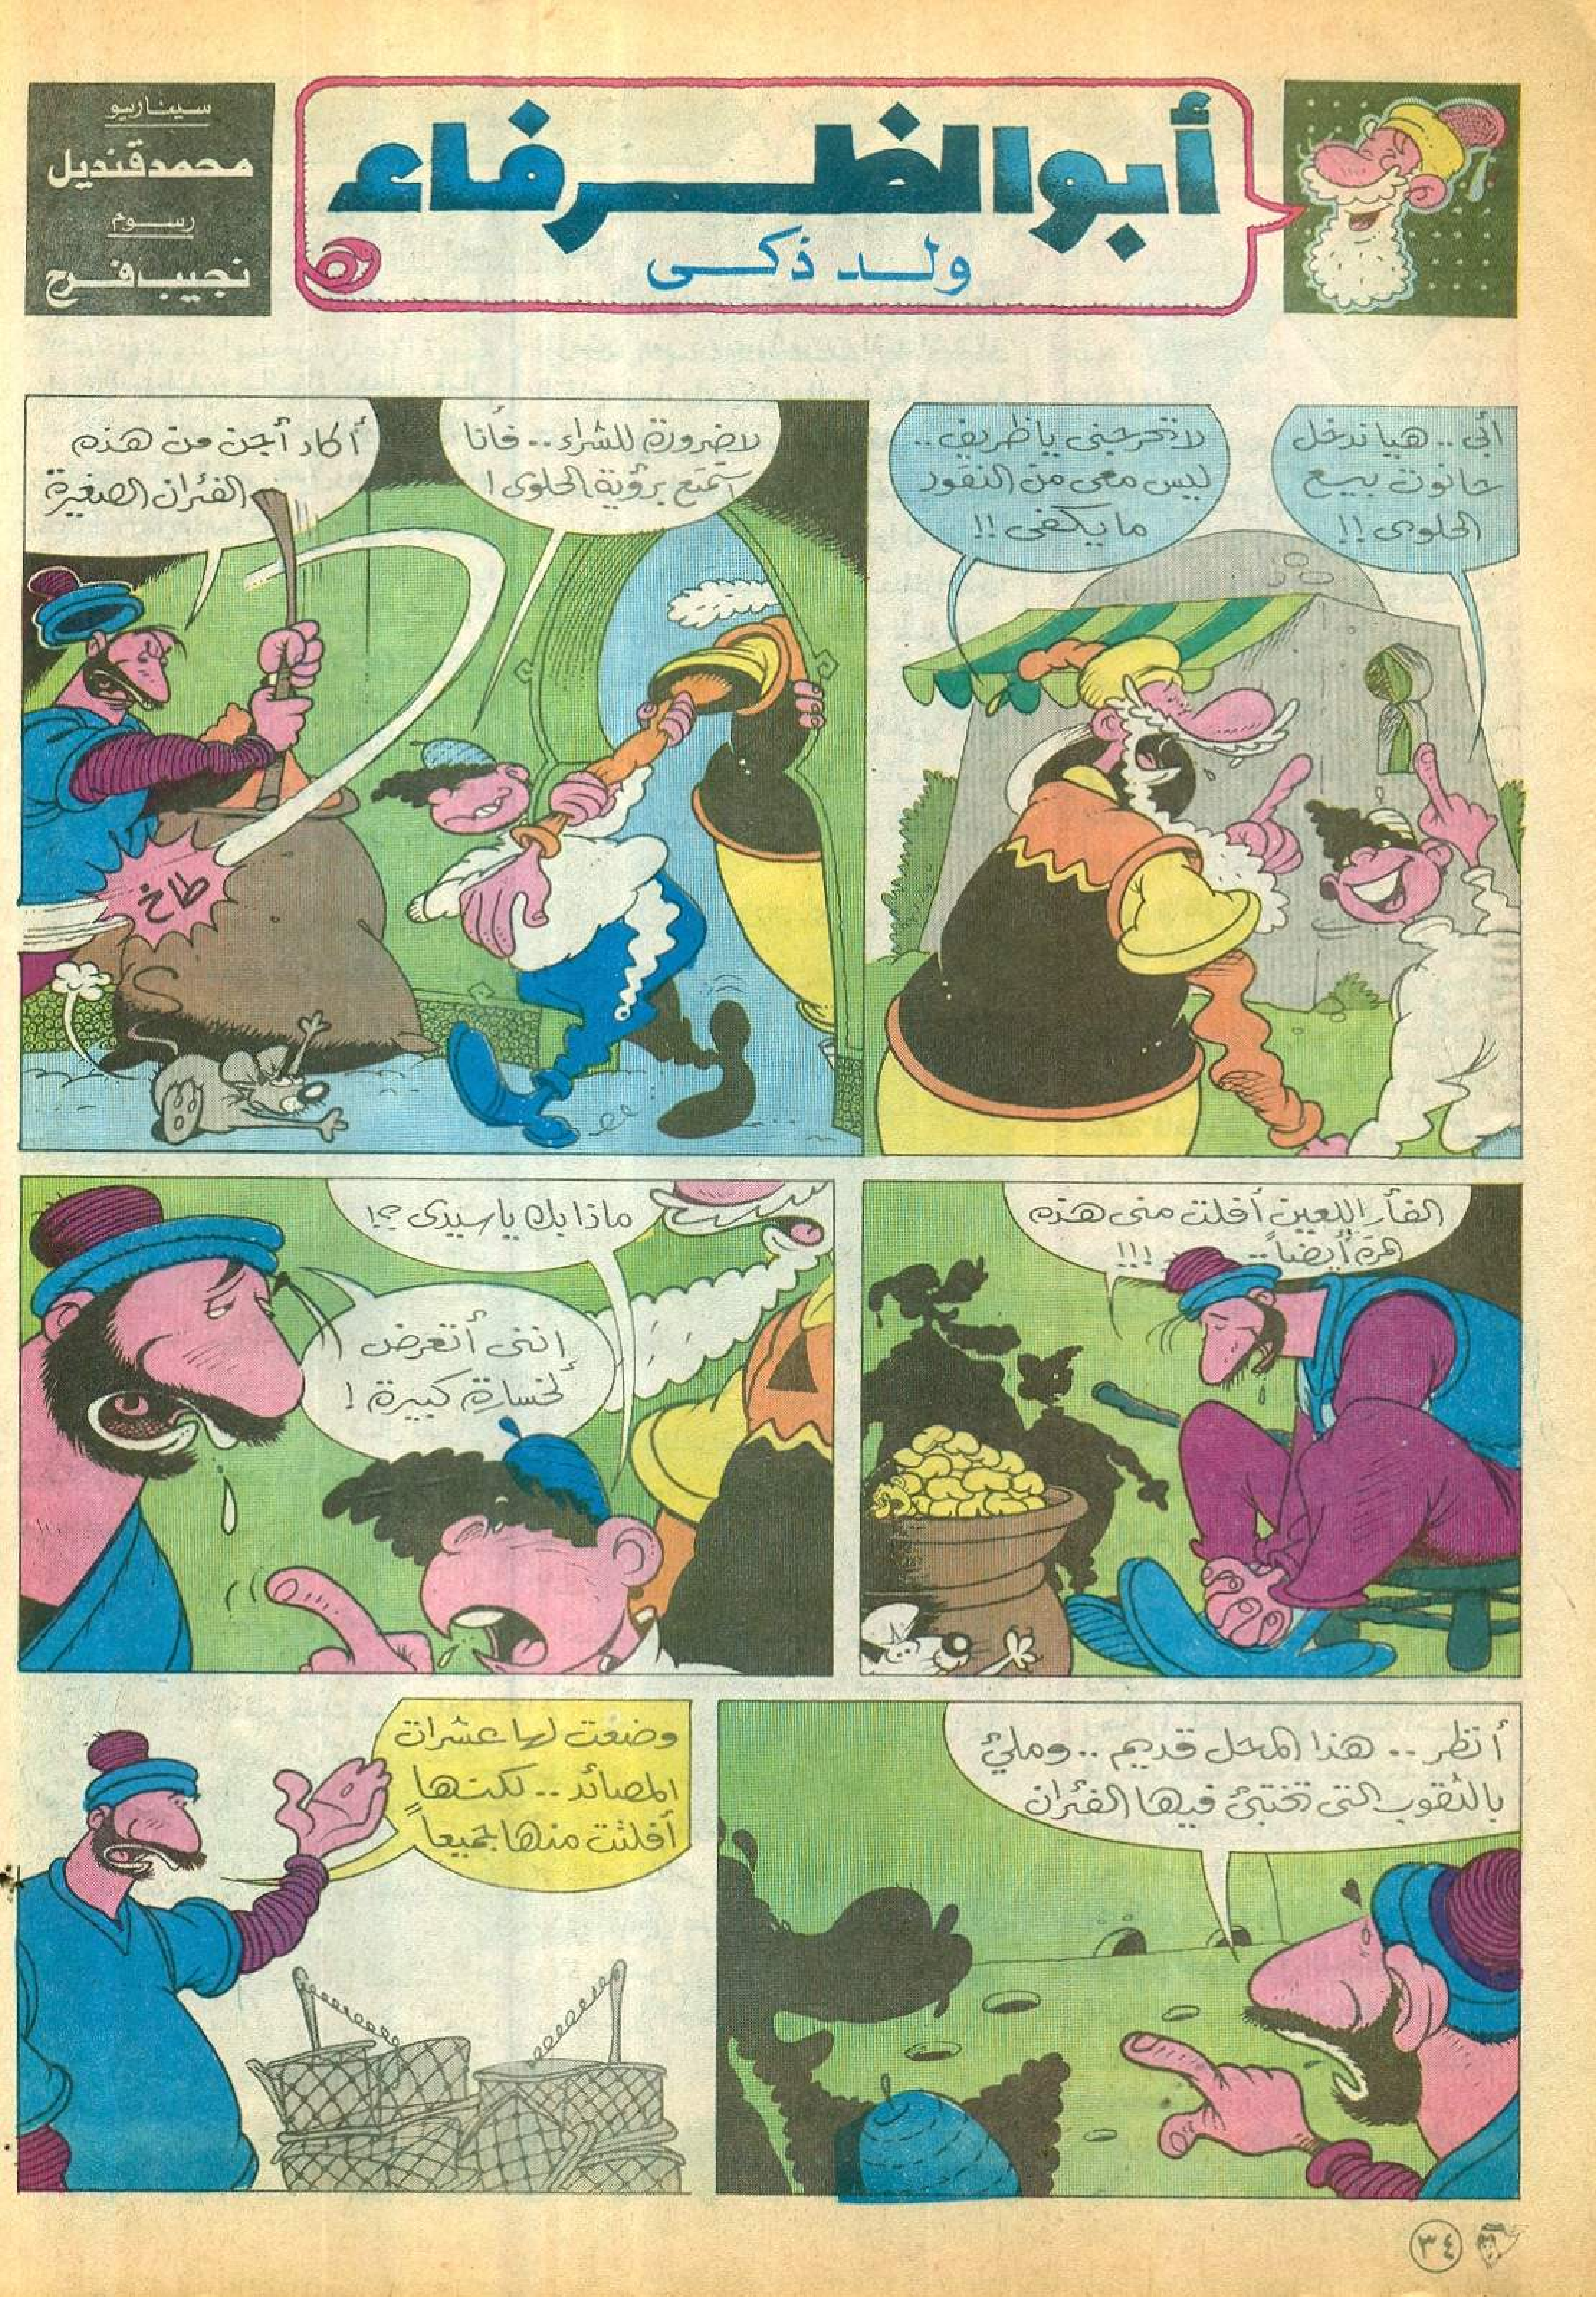 أبو الظرفاء
ولد ذكى
سيناريو
محمد قنديل
رسوم
نجيب فرج
أبى .. هيا ندخل
حانوت بيع
الحلوى !!
لا تحرجنى يا ظريف ..
ليس معى من النقود
ما يكفى !!
لا ضرورة للشراء .. فأنا
أتمتع برؤية الحلوى !
أكاد أجن من هذه
الفئران الصغيرة
طاخ
الفأر اللعين أفلت منى هذه
المرة أيضاً .. !!!
ماذا بك يا سيدى ؟!
إننى أتعرض
لخسارة كبيرة !
أنظر .. هذا المحل قديم .. وملئ
بالثقوب التى تختبئ فيها الفئران
وضعت لها عشرات
المصائد .. لكنها
أفلتت منها جميعاً
٣٤